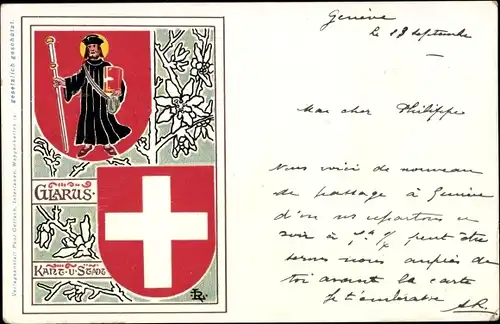 Verlagsanstalt Paul Gerlach, Interlaken, Wappenkarten
gesetzlich geschützt.
GLARUS·
KANT·U·STADT
Genève
le 18 septembre
Mon cher Philippe
Nous voici de nouveau
de passage à Genève
d'où ns repartons ce
soir à peut être
serons nous auprès de
toi avant la carte
Je t'embrasse